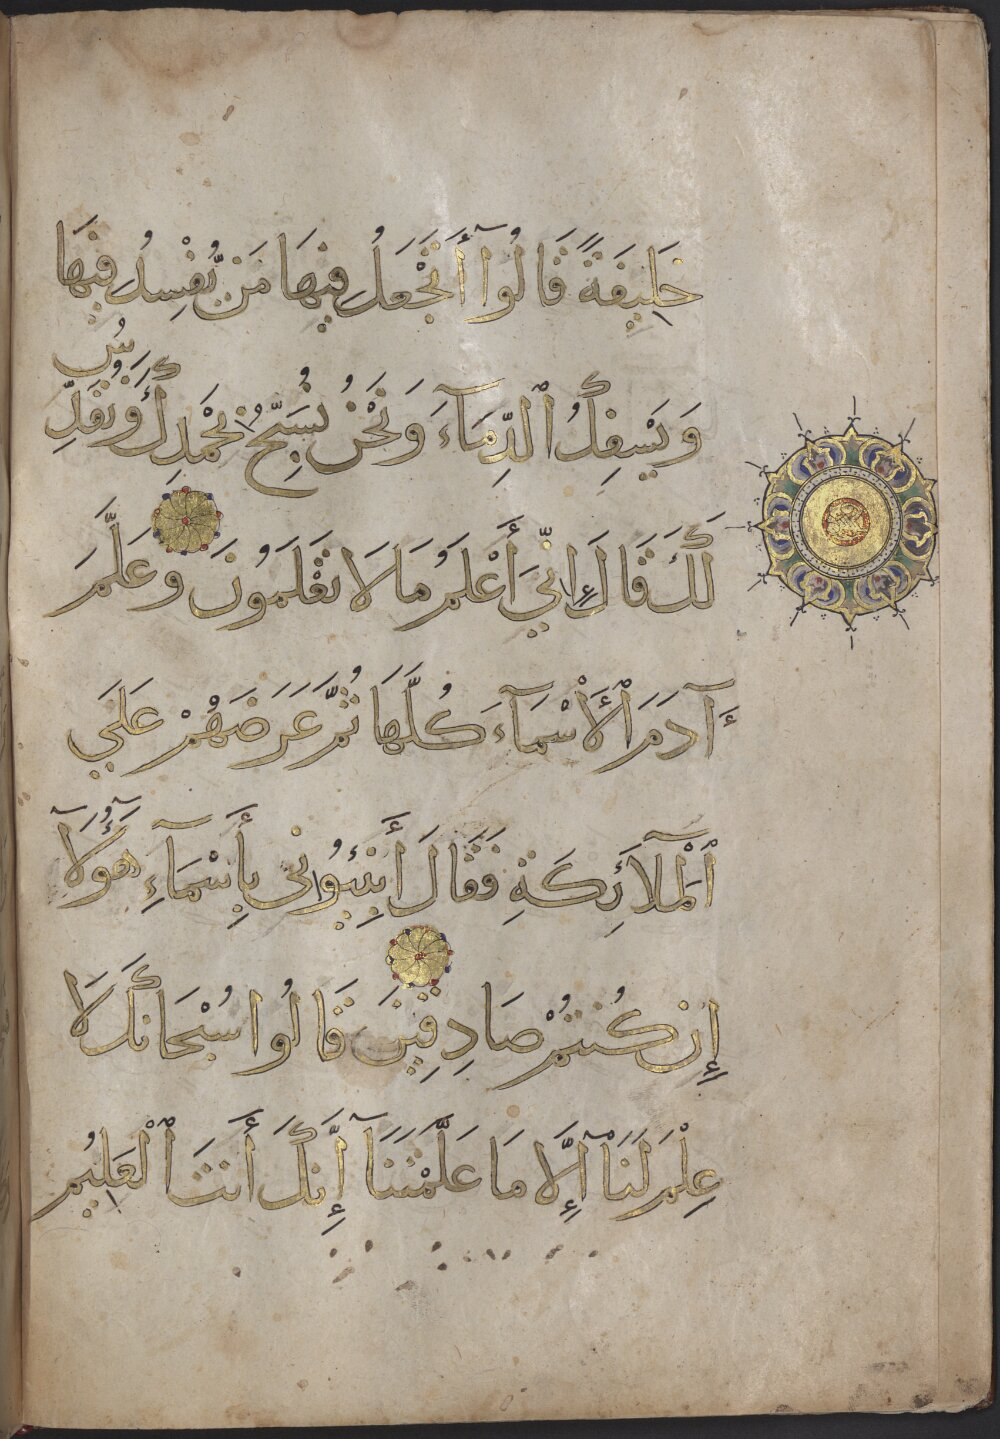 خَلِيفَةً قَالُوٓا أَتَجْعَلُ فِيهَا مَن يُّفْسِدُ فِيهَا
وَيَسْفِكُ الدِّمَآءَ وَنَحْنُ نُسَبِّحُ بِحَمْدِكَ وَنُقَدِّسُ
لَكَ قَالَ إِنِّي أَعْلَمُ مَا لَا تَعْلَمُونَ وَعَلَّمَ
ءَآدَمَ الْأَسْمَآءَ كُلَّهَا ثُمَّ عَرَضَهُمْ عَلَي
الْمَلَآئِكَةِ فَقَالَ أَنبِـُٔونِى بِأَسْمَآءِ هَٓؤُلَآ
إِن كُنتُمْ صَادِقِينَ قَالُوا سُبْحَانَكَ لَا
عِلْمَ لَنَآ إِلَّا مَا عَلَّمْتَنَآ إِنَّكَ أَنتَ الْعَلِيمُ